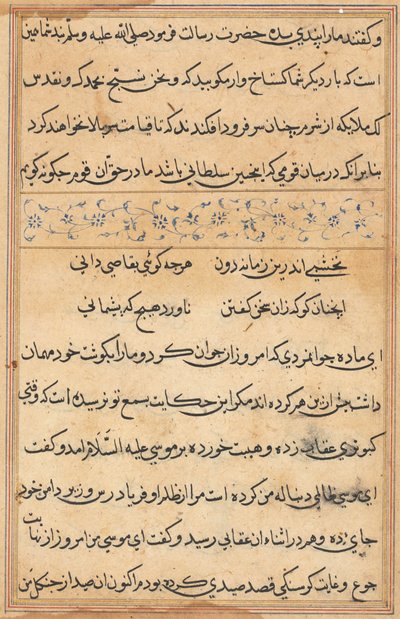 و گفتند ما را پندی بده حضرت رسالت فرمود صلی الله علیه وسلم پند شما همین
است که بار دیگر شما گستاخ وار مگویید که و نحن نسبح بحمدک و نقدس
لک ملایکه از شرم چنان سر فرود افکندند که تا قیامت سر بالا نخواهند کرد
بنابر آنکه در میان قومی که اینچنین سلطانی باشد ما در حق آن قوم چگونه گویم
نخشبی اندرین زمانه دون هرچه گوئی بقاصی دانی
آنچنان گو که زان سخن گفتن ناورد هیچ گه پشمانی
ای ماده جوانمردی که امروز آن جوان کرد و مار را بگوشت خود مهمان
داشت پیش ازین هم کرده اند مگر این حکایت بسمع تو نرسیده است که وقتی
کبوتری عقاب زده و هیبت خورده بر موسی علیه السلام آمد و گفت
ای موسی ظالمی دنباله من کرده است مرا از ظلم او فریاد رس و زیر دامن خود
جای ده و هم در اثناء آن عقابی رسید و گفت ای موسی من امروز از نهایت
جوع و غایت گرسنگی قصد صیدی کرده بودم اکنون آن صید از چنگل من